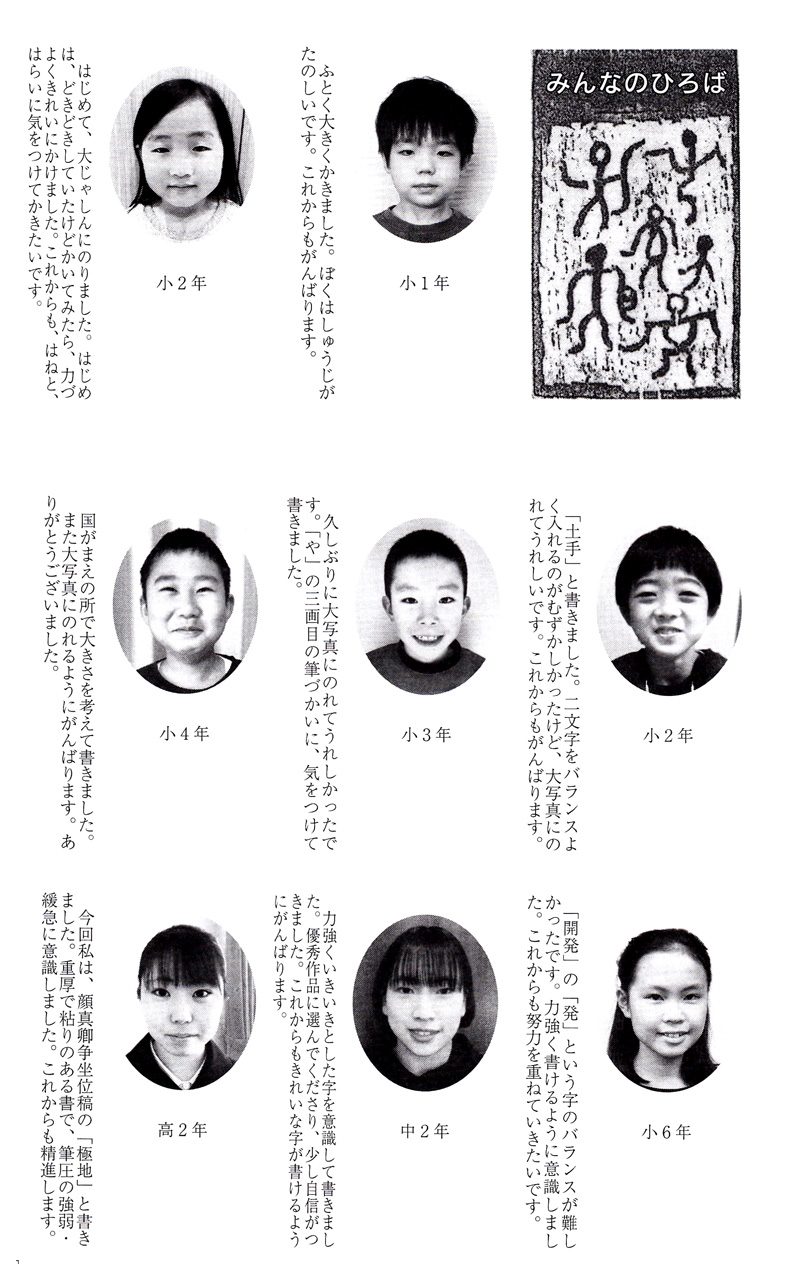 みんなのひろば
ふとく大きくかきました。ぼくはしゅうじが
たのしいです。これからもがんばります。
小1年
はじめて、大じゃしんにのりました。はじめ
は、どきどきしていたけどかいてみたら、力づ
よくきれいにかけました。これからも、はねと、
はらいに気をつけてかきたいです。
小2年
「土手」と書きました。二文字をバランスよ
く入れるのがむずかしかったけど、大写真にの
れてうれしいです。これからもがんばります。
小2年
久しぶりに大写真にのれてうれしかったで
す。「や」の三画目の筆づかいに、気をつけて
書きました。
小3年
国がまえの所で大きさを考えて書きました。
また大写真にのれるようにがんばります。あ
りがとうございました。
小4年
「開発」の「発」という字のバランスが難し
かったです。力強く書けるように意識しまし
た。これからも努力を重ねていきたいです。
小6年
力強くいきいきとした字を意識して書きまし
た。優秀作品に選んでくださり、少し自信がつ
きました。これからもきれいな字が書けるよう
にがんばります。
中2年
今回私は、顔真卿争坐位稿の「極地」と書き
ました。重厚で粘りのある書で、筆圧の強弱・
緩急に意識しました。これからも精進します。
高2年